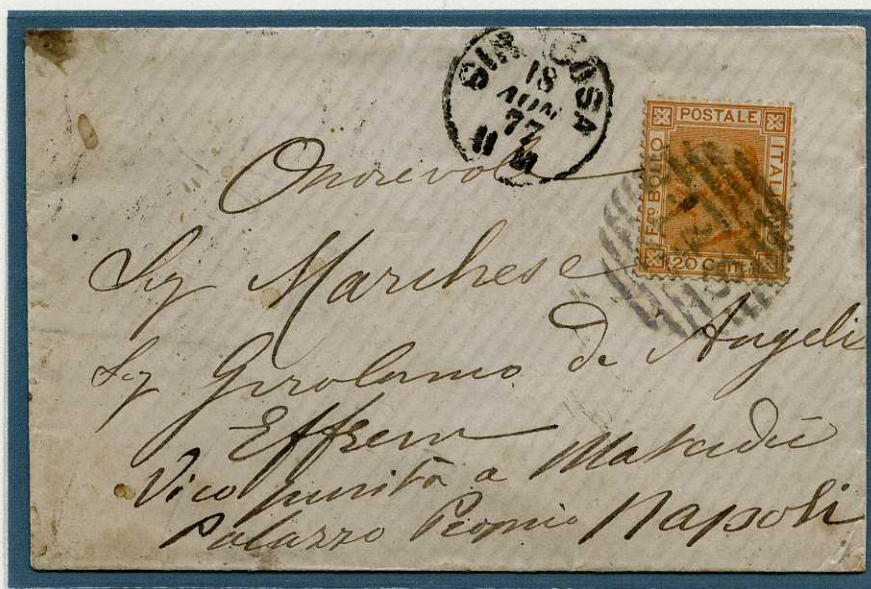 SIRACUSA
18
77
POSTALE
F.CO BOLLO
ITAL
20 Cent
Onorevole
Sig Marchese
Sig Girolamo de Angeli
Effrem
Vico purità a Matardei
Palazzo Proprio Napoli